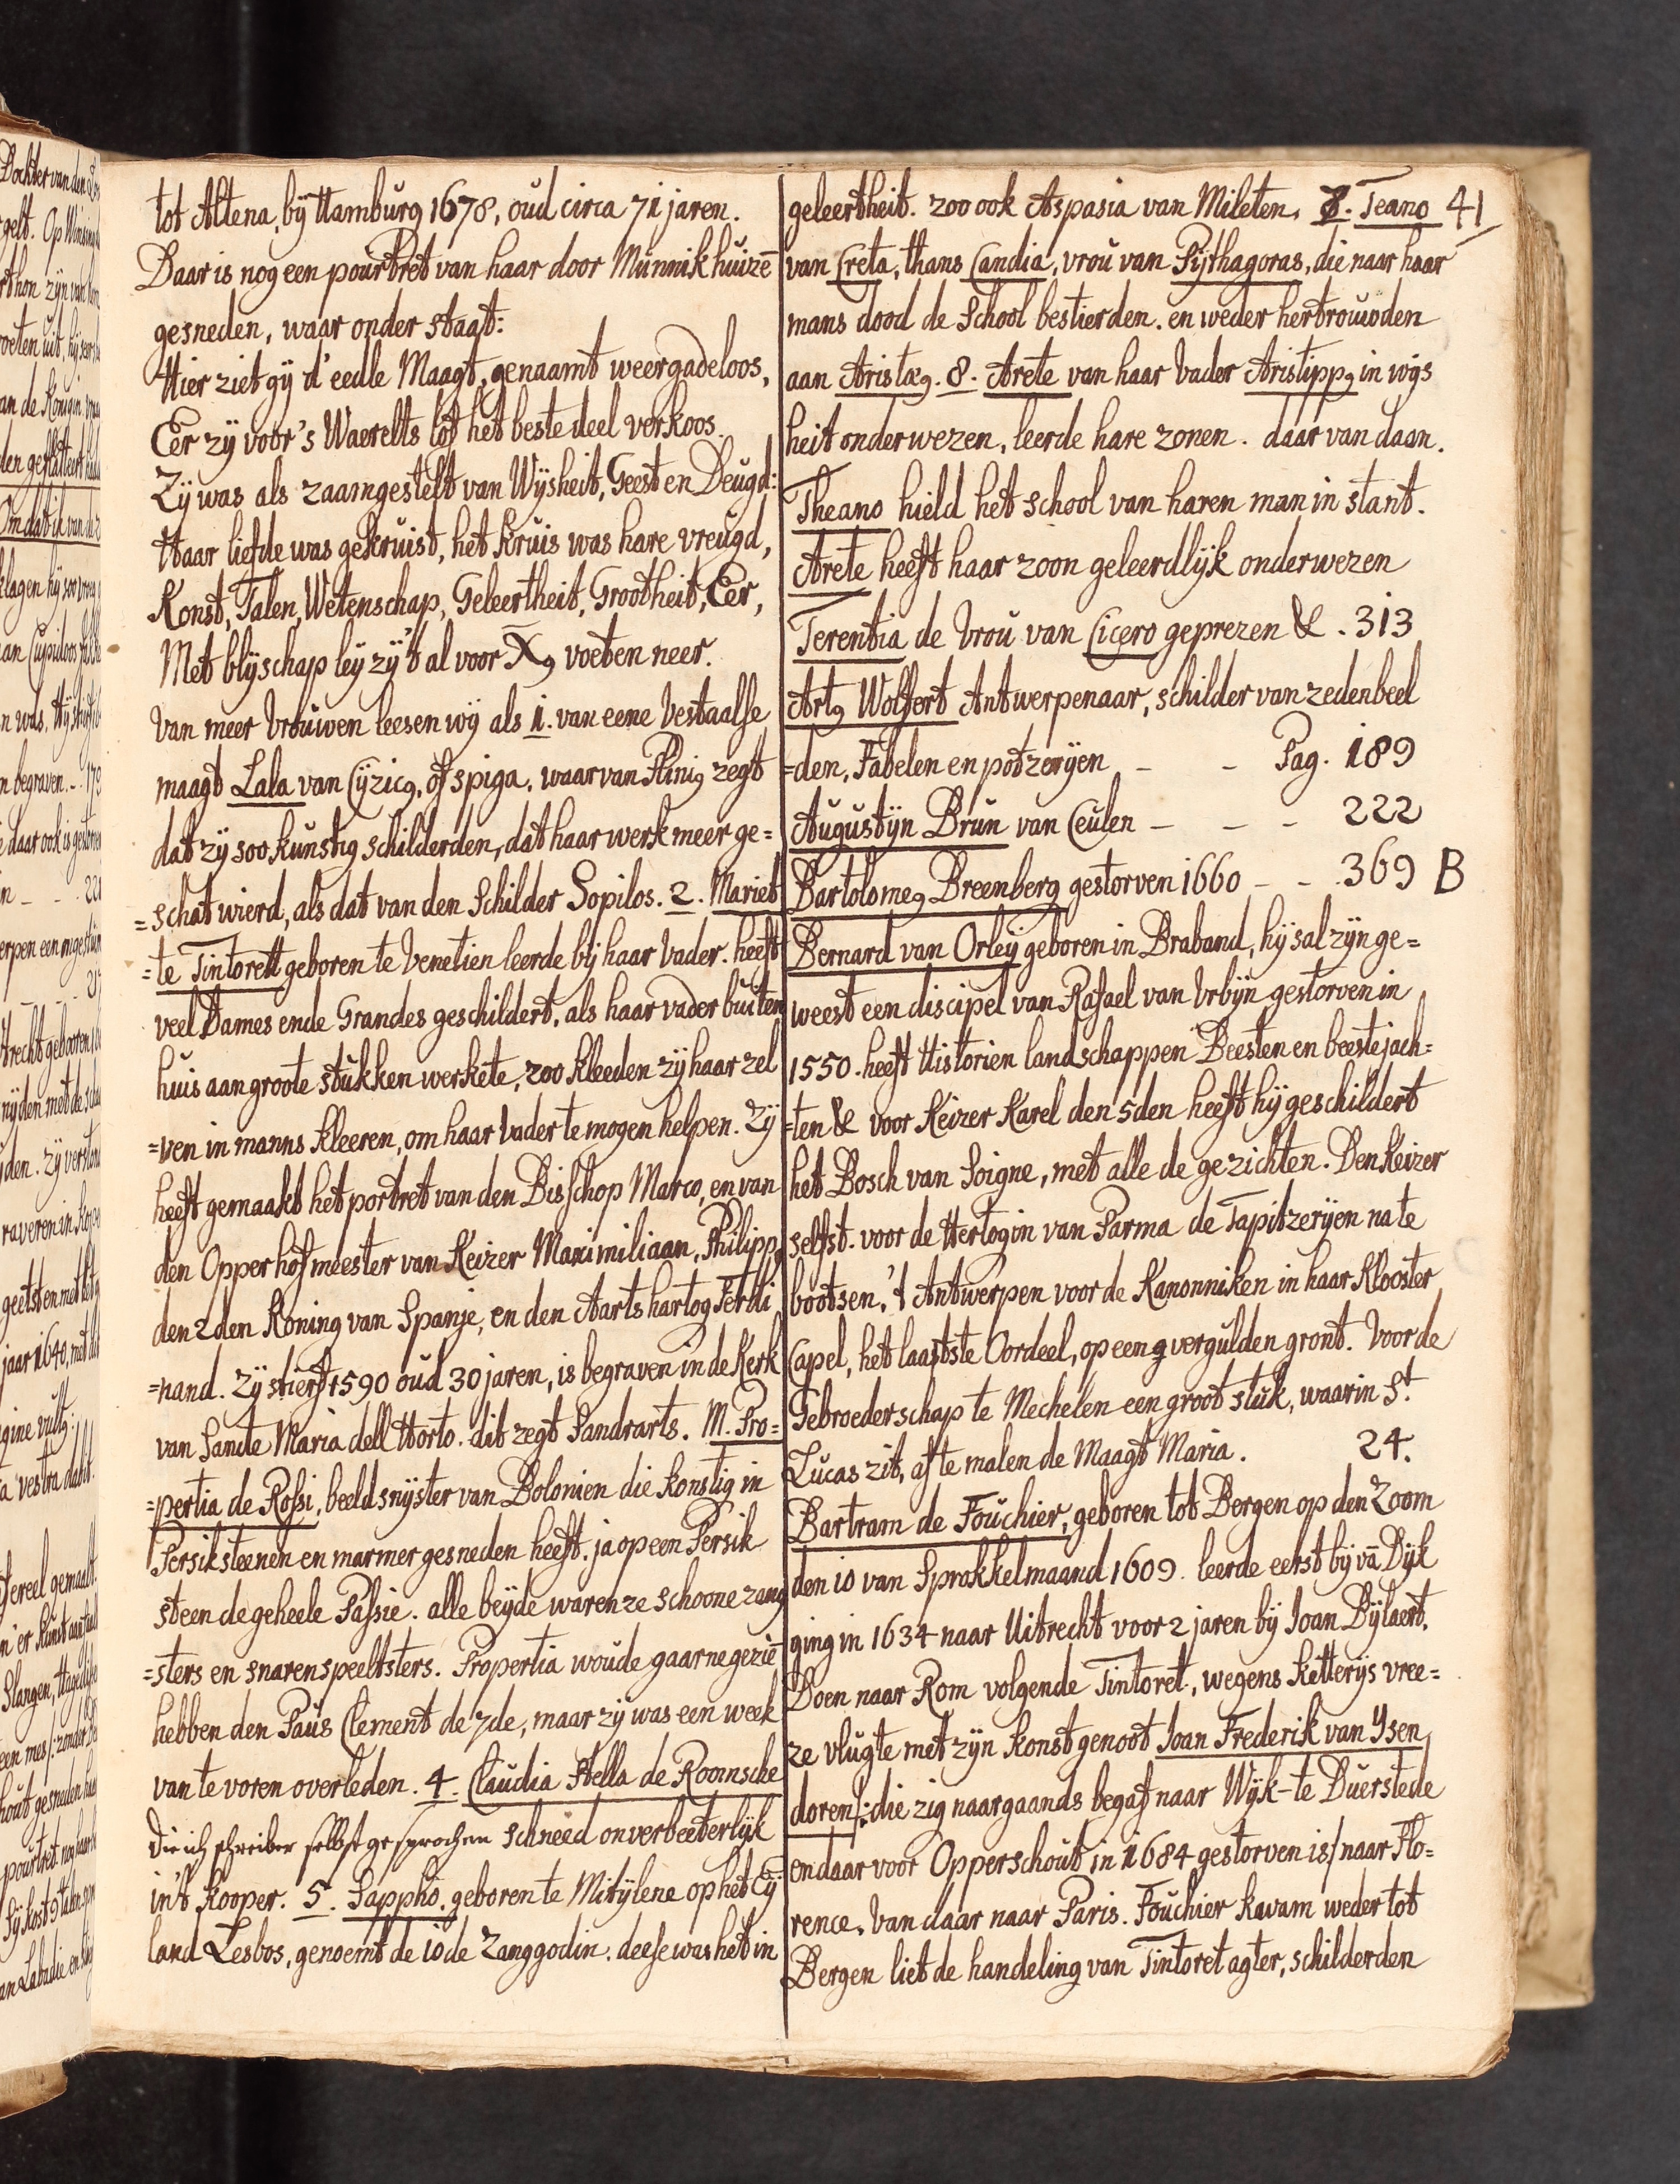 tot Altena, bÿ Hamburg 1678, oud circa 71 jaren.
Daar is nog een pourtret van haar door Munnikhuizē
gesneden, waar onder staat:
Hier ziet gÿ d'eedle Maagt, genaamt weergadeloos,
Eer zÿ voor 's Waerelts lof het beste deel verkoos.
Zÿ was als zaamgestelt van Wÿsheit, Geest en Deugd:
Haar liefde was gekruist, het kruis was hare vreugd,
Konst, Talen, Wetenschap, Geleertheit, Grootheit, Eer,
Met blÿschap leÿ zÿ't al voor X9 voeten neer.
Van meer Vrouwen leesen wÿ als 1. van eene Vestaalse
maagt Lala van Cÿzic9, of spiga, waar van Plini9 zegt
dat zÿ soo kunstig schilderden, dat haar werk meer ge=
=schat wierd, als dat van den Schilder Sopilos. 2. Mariet
=te Tintorett geboren te Venetien leerde bÿ haar Vader. heeft
veel Dames ende Grandes geschildert, als haar vader buiten
huis aan groote stukken werkete, zoo kleeden zÿ haar zel
=ven in manns kleeren, om haar Vader te mogen helpen. Zÿ
heeft gemaakt het portret van den Bisschop Marco, en van
den Opperhofmeester van Keizer Maximiliaan, Philipp9
den 2den Koning van Spanje, en den Aartshartog Ferdi
=nand. Zÿ stierf 1590 oud 30 jaren, is begraven in de Kerk
van Sancte Maria dell Horto. dit zegt Sandrarts. M. Pro=
=pertia de Rossi, beeldsnÿster van Bolonien die konstig in
Persiksteenen en marmer gesneden heeft. ja op een Persik
steen de geheele Passie. alle beÿde waren ze schoone zang
=sters en snarenspeeltsters. Propertia woude gaarne geziē
hebben den Paus Clement de 7de, maar zÿ was een week
van te voren overleden. 4. Claudia Stella de Roomsche
die ich schreiber selbst gesprochen schneed onverbeeterlÿk
in't kooper. 5. Sappho. geboren te Mitÿlene op het Eÿ
land Lesbos, genoemt de 10de Zanggodin. deese was het in
geleertheit. zoo ook Aspasia van Mileten. 7. Teano 41
van Creta, thans Candia, vrou van Pÿthagoras, die naar haar
mans dood de School bestierden. en weder hertrouwden
aan Aristæ9. 8. Arete van haar Vader Aristipp9 in wÿs
heit onderwezen, leerde hare zonen. daar van daan.
Theano hield het school van haren man in stant.
Arete heeft haar zoon geleerdlÿk onderwezen
Terentia de Vrou van Cicero geprezen &. 313
Art9 Wolfert Antwerpenaar, schilder van zedenbeel
=den, Fabelen en potzerÿen - - Pag. 189
Augustÿn Brun van Ceulen - - - 222
Bartolome9 Breenberg gestorven 1660 - - 369 B
Bernard van Orleÿ geboren in Braband, hÿ sal zÿn ge=
weest een discipel van Rafael van Urbÿn gestorven in
1550. heeft Historien landschappen Beesten en beestejach=
=ten & voor Keizer Karel den 5den heeft hÿ geschildert
het Bosch van Soigne, met alle de gezichten. Den Keizer
selfst. voor de Hertogin van Parma de Tapitzerÿen na te
bootsen, 't Antwerpen voor de Kanonniken in haar Klooster
Capel, het laatste Oordeel, op een g vergulden gront. Voor de
Gebroederschap te Mechelen een groot stuk, waarin St.
Lucas zit, af te malen de Maagt Maria. 24.
Bartram de Fouchier, geboren tot Bergen op den Zoom
den 10 van Sprokkelmaand 1609. leerde eerst bÿ vā Dÿk
ging in 1634 naar Uitrecht voor 2 jaren bÿ Joan Bÿlaert,
Doen naar Rom volgende Tintoret, wegens ketterÿs vree=
ze vlugte met zÿn konstgenoot Joan Frederik van Ysen
doren /: die zig naargaands begaf naar Wÿk-te Duerstede
en daar voor Opperschout in 1684 gestorven is / naar Flo=
rence. Van daar naar Paris. Fouchier kwam weder tot
Bergen liet de handeling van Tintoret agter, schilderden